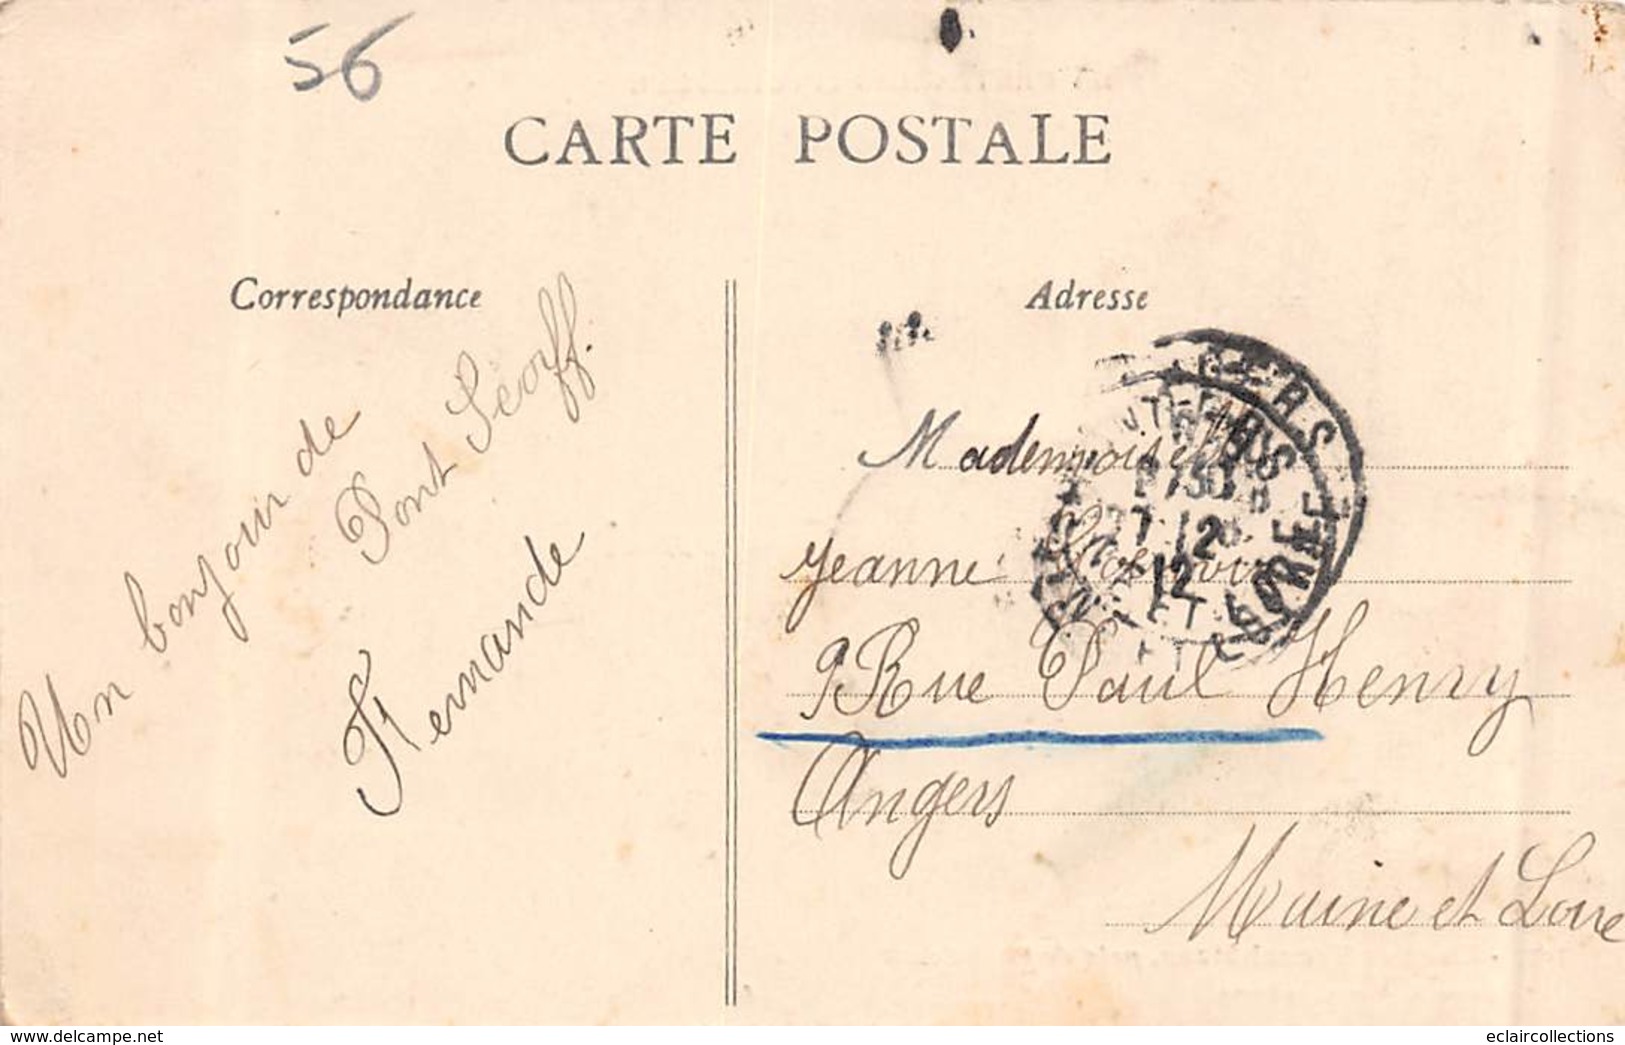 56
CARTE POSTALE
Correspondance
Adresse
Un bonjour de
Pont Scorff.
Fernande
Mademoiselle
Jeanne
9 Rue Paul Henry
Angers
Maine et Loire
ANGERS
17 12
12
ET LOIRE
www.delcampe.net
eclaircollections